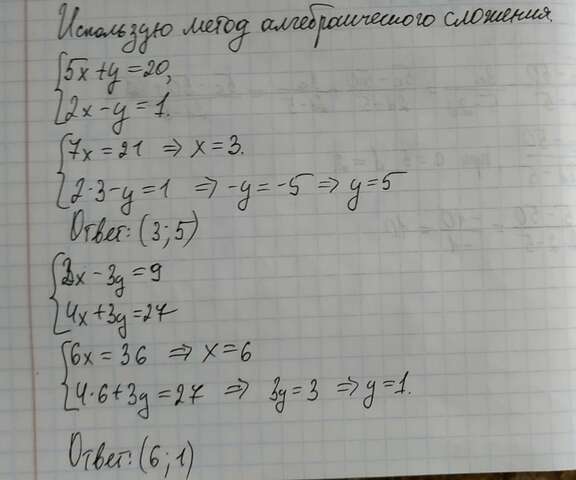 Использую метод алгебраического сложения.
5x+y=20,
2x-y=1.
7x=21 ⇒ x=3.
2·3-y=1 ⇒ -y=-5 ⇒ y=5
Ответ: (3; 5)
2x-3y=9
4x+3y=27
6x=36 ⇒ x=6
4·6+3y=27 ⇒ 3y=3 ⇒ y=1.
Ответ: (6; 1)